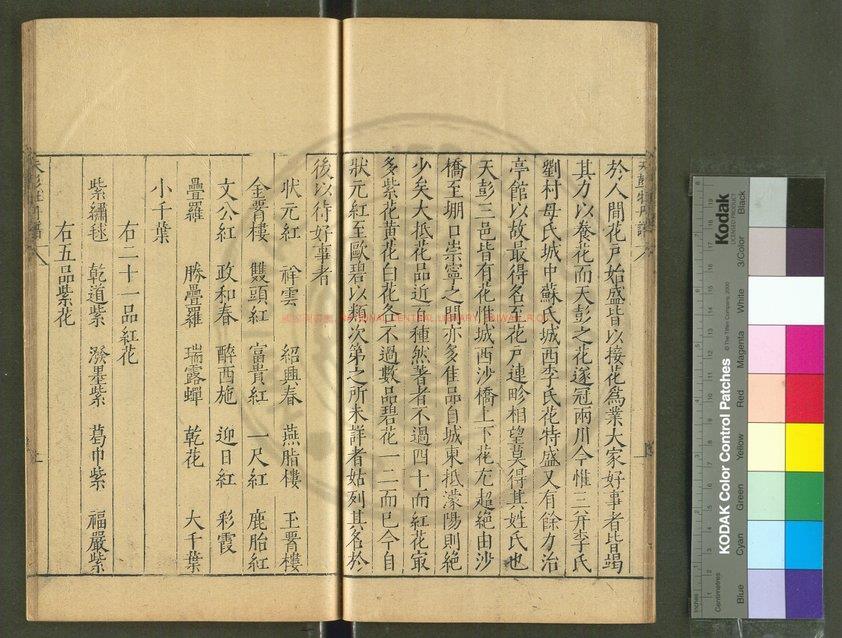 於人間花戶始盛皆以接花為業大家好事者皆竭
其力以養花而天彭之花遂冠兩川今惟三井李氏
劉村母氏城中蘇氏城西李氏花特盛又有餘力治
亭館以故最得名至花戶連畛相望莫得其姓氏也
天彭三邑皆有花惟城西沙橋上下花尤超絕由沙
橋至堋口崇寧之間亦多佳品自城東抵濛陽則絕
少矣大抵花品近百種然著者不過四十而紅花冣
多紫花黃花白花各不過數品碧花一二而已今自
狀元紅至歐碧以類次第之所未詳者姑列其名於
後以待好事者
狀元紅 祥雲 紹興春 燕脂樓 玉腰樓
金腰樓 雙頭紅 富貴紅 一尺紅 鹿胎紅
文公紅 政和春 醉西施 迎日紅 彩霞
疊羅 勝疊羅 瑞露蟬 乾花 大千葉
小千葉
右二十一品紅花
紫繡毬 乾道紫 潑墨紫 葛巾紫 福嚴紫
右五品紫花
天彭牡丹譜
Kodak
KODAK Color Control Patches
© The Tiffen Company, 2000
LICENSED PRODUCT
Black
3/Color
White
Magenta
Red
Yellow
Green
Cyan
Blue
Centimetres
Inches